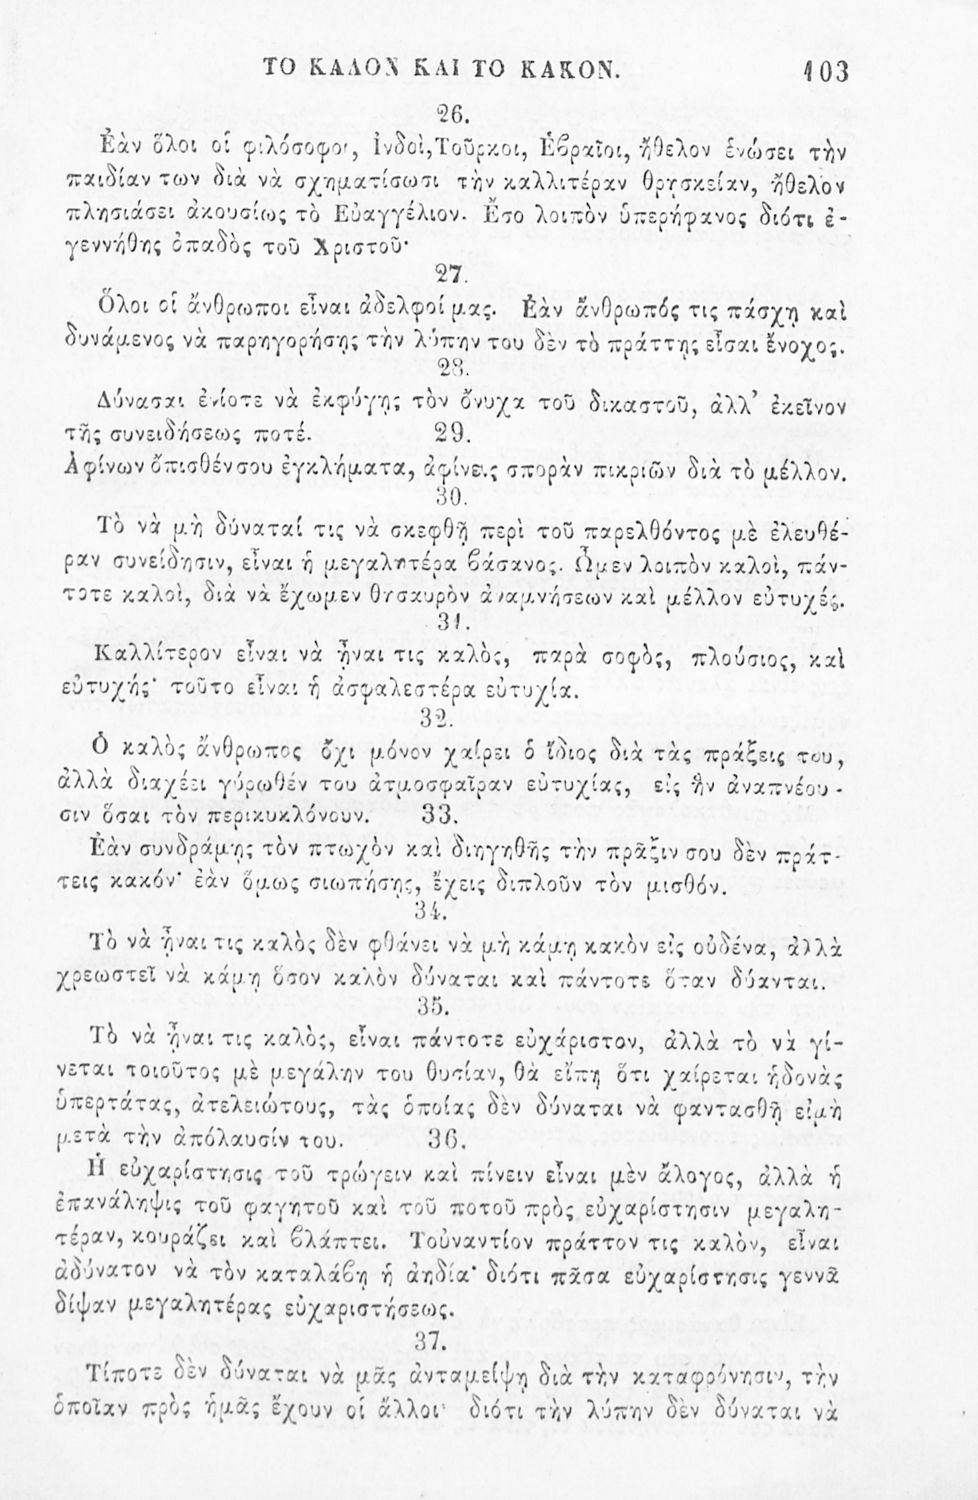 ΤΟ ΚΑΛΟΝ ΚΑΙ ΤΟ ΚΑΚΟΝ. 103
26.
Ἐὰν ὅλοι οἱ φιλόσοφοι, Ἰνδοὶ, Τοῦρκοι, Ἑβραῖοι, ἤθελον ἑνώσει τὴν
παιδίαν των διὰ νὰ σχηματίσωσι τὴν καλλιτέραν θρησκείαν, ἤθελον
πλησιάσει ἀκουσίως τὸ Εὐαγγέλιον. Ἔσο λοιπὸν ὑπερήφανος διότι ἐ-
γεννήθης ὀπαδὸς τοῦ Χριστοῦ·
27.
Ὅλοι οἱ ἄνθρωποι εἶναι ἀδελφοί μας. Ἐὰν ἄνθρωπός τις πάσχῃ καὶ
δυνάμενος νὰ παρηγορήσῃς τὴν λύπην του δὲν τὸ πράττῃς εἶσαι ἔνοχος.
28.
Δύνασαι ἐνίοτε νὰ ἐκφύγῃς τὸν ὄνυχα τοῦ δικαστοῦ, ἀλλ’ ἐκεῖνον
τῆς συνειδήσεως ποτέ. 29.
Ἀφίνων ὄπισθέν σου ἐγκλήματα, ἀφίνεις σπορὰν πικριῶν διὰ τὸ μέλλον.
30.
Τὸ νὰ μὴ δύναταί τις νὰ σκεφθῇ περὶ τοῦ παρελθόντος μὲ ἐλευθέ-
ραν συνείδησιν, εἶναι ἡ μεγαλητέρα βάσανος. Ὦμεν λοιπὸν καλοὶ, πάν-
τοτε καλοὶ, διὰ νὰ ἔχωμεν θησαυρὸν ἀναμνήσεων καὶ μέλλον εὐτυχές.
31.
Καλλίτερον εἶναι νὰ ἦναι τις καλὸς, παρὰ σοφὸς, πλούσιος, καὶ
εὐτυχής· τοῦτο εἶναι ἡ ἀσφαλεστέρα εὐτυχία.
32.
Ὁ καλὸς ἄνθρωπος ὄχι μόνον χαίρει ὁ ἴδιος διὰ τὰς πράξεις του,
ἀλλὰ διαχέει γύρωθέν του ἀτμοσφαῖραν εὐτυχίας, εἰς ἣν ἀναπνέου-
σιν ὅσαι τὸν περικυκλόνουν. 33.
Ἐὰν συνδράμῃς τὸν πτωχὸν καὶ διηγηθῆς τὴν πρᾶξιν σου δὲν πράτ-
τεις κακόν· ἐὰν ὅμως σιωπήσῃς, ἔχεις διπλοῦν τὸν μισθόν.
34.
Τὸ νὰ ἦναι τις καλὸς δὲν φθάνει νὰ μὴ κάμῃ κακὸν εἰς οὐδένα, ἀλλὰ
χρεωστεῖ νὰ κάμῃ ὅσον καλὸν δύναται καὶ πάντοτε ὅταν δύανται.
35.
Τὸ νὰ ἦναι τις καλὸς, εἶναι πάντοτε εὐχάριστον, ἀλλὰ τὸ νὰ γί-
νεται τοιοῦτος μὲ μεγάλην του θυσίαν, θὰ εἴπῃ ὅτι χαίρεται ἡδονὰς
ὑπερτάτας, ἀτελειώτους, τὰς ὁποίας δὲν δύναται νὰ φαντασθῇ εἰμὴ
μετὰ τὴν ἀπόλαυσίν του. 36.
Ἡ εὐχαρίστησις τοῦ τρώγειν καὶ πίνειν εἶναι μὲν ἄλογος, ἀλλὰ ἡ
ἐπανάληψις τοῦ φαγητοῦ καὶ τοῦ ποτοῦ πρὸς εὐχαρίστησιν μεγαλη-
τέραν, κουράζει καὶ βλάπτει. Τοὐναντίον πράττον τις καλὸν, εἶναι
ἀδύνατον νὰ τὸν καταλάβῃ ἡ ἀηδία· διότι πᾶσα εὐχαρίστησις γεννᾷ
δίψαν μεγαλητέρας εὐχαριστήσεως.
37.
Τίποτε δὲν δύναται νὰ μᾶς ἀνταμείψῃ διὰ τὴν καταφρόνησιν, τὴν
ὁποῖαν πρὸς ἡμᾶς ἔχουν οἱ ἄλλοι· διότι τὴν λύπην δὲν δύναται νὰ